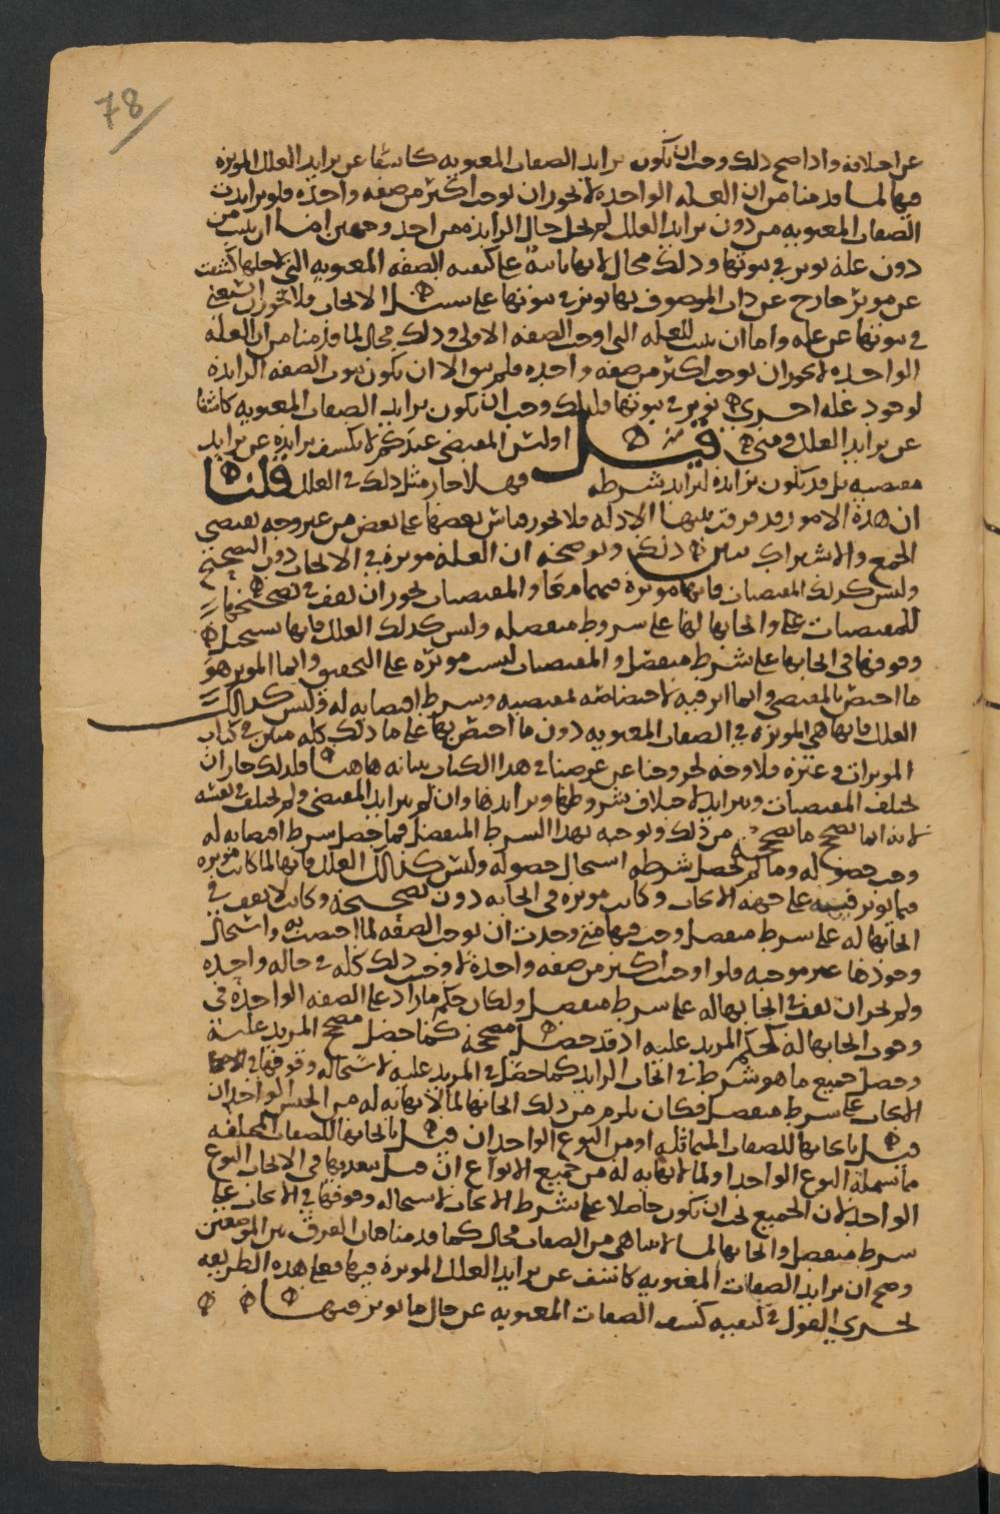 78
عن احلافه واذا صح ذلك وجب ان يكون تزايد الصفات المعنويه كاشفا عن تزايد العلل الموثره
فيها لما قدمنا من ان العله الواحده لا يجوز ان توجب اكثر من صفه واحده فلو تزايدت
الصفات المعنويه من دون تزايد العلل لم يخل حال الزايده من احد وجهين اما ان يثبت من
دون عله توثر في ثبوتها وذلك محال لانها بانية على كيفيه الصفه المعنويه التي لاجلها كشفت
عن موثر خارج عن ذات الموصوف بها يوثر في ثبوتها على سبيل الايجاب فلا يجوز ان تستغني
في ثبوتها عن عله واما ان يثبت للعله التي اوجبت الصفه الاولى وذلك محال لما قدمنا من ان العله
الواحده لا يجوز ان توجب اكثر من صفه واحده فلم يبق الا ان يكون ثبوت الصفه الزايده
لوجود عله اخرى توثر في ثبوتها فلذلك وجب ان يكون تزايد الصفات المعنويه كاشفا
عن تزايد العلل ومتى قيل اوليس المقتضي عندكم لا يكشف تزايده عن تزايد
مقتضيه بل قد يكون تزايده لتزايد شرطه فهلا جاز مثل ذلك في العلل قلنا
ان هذه الامور قد فرقت بينها الادله فلا يجوز قياس بعضها على بعض من غير وجه يقتضي
الجمع والاشتراك يبين ذلك ويوضحه ان العله موثره في الايجاب دون التصحيح
وليس كذلك المقتضيات فانها موثرة فيهما معا والمقتضيات يجوز ان تقف في تصحيحها
للمقتضيات وايجابها لها على شروط منفصله وليس كذلك العلل فانها يستحيل
وقوفها في ايجابها على شرط منفصل والمقتضيات ليست موثره على التحقيق وانما الموثر هو
ما اختص بالمقتضي وانما اثر فيه لاختصاصه بمقتضيه وشرط اقتضايه له وليس كذلك
العلل فانها هي الموثره في الصفات المعنويه دون ما اختص بها على ما ذلك كله مبين في كتاب
الموثرات وغيره فلا وجه لخروجنا عن غرضنا في هذا الكتاب ببيانه هاهنا فلذلك جاز ان
تختلف المقتضيات وتتزايد لاختلاف شروطها وتزايدها وان لم يتزايد المقتضي ولم يختلف في نفسه
لانه انما يصحح ما يصححه من ذلك ويوجبه بهذا الشرط المنفصل فما حصل شرط اقتضايه له
وجب حصوله وما لم يحصل شرطه استحال حصوله وليس كذلك العلل فانها لما كانت موثره
فيما يوثر فيه على جهه الايجاب وكانت موثره في ايجابه دون تصحيحه وكانت لا تقف في
ايجابها له على شرط منفصل وجب فيها متى وجدت ان توجب الصفه لما اختصت به واستحال
وجودها غير موجبه فلو اوجبت اكثر من صفه واحدة لاوجبت ذلك كله في حاله واحده
ولم يجز ان تقف في ايجابها له على شرط منفصل ولكان حكم ما زاد على الصفه الواحده في
وجوب ايجابها له كحكم المزيد عليه اذ قد حصل مصححه كما حصل مصحح المزيد عليه
وحصل جميع ما هو شرط في ايجاب الزايد كما حصل في المزيد عليه لاستحاله وقوفها في
الايجاب على شرط منفصل فكان يلزم من ذلك ايجابها لما لا نهايه له من الجنس الواحد ان
قيل بايجابها للصفات المتماثله او من النوع الواحد ان قيل بايجابها للصفات المختلفه
مما شمله النوع الواحد او لما لا نهايه له من جميع الانواع ان قيل بتعديها في الايجاب النوع
الواحد لان الجميع يجب ان يكون حاصلا على شرط الايجاب لاستحاله وقوفها في الايجاب على
شرط منفصل وايجابها لما لا يتناهى من الصفات محال كما قدمنا فبان الفرق بين الموضعين
وصح ان تزايد الصفات المعنويه كاشف عن تزايد العلل الموثره فيها فعلى هذه الطريقه
يجري القول في كيفيه كشف الصفات المعنويه عن حال ما يوثر فيها